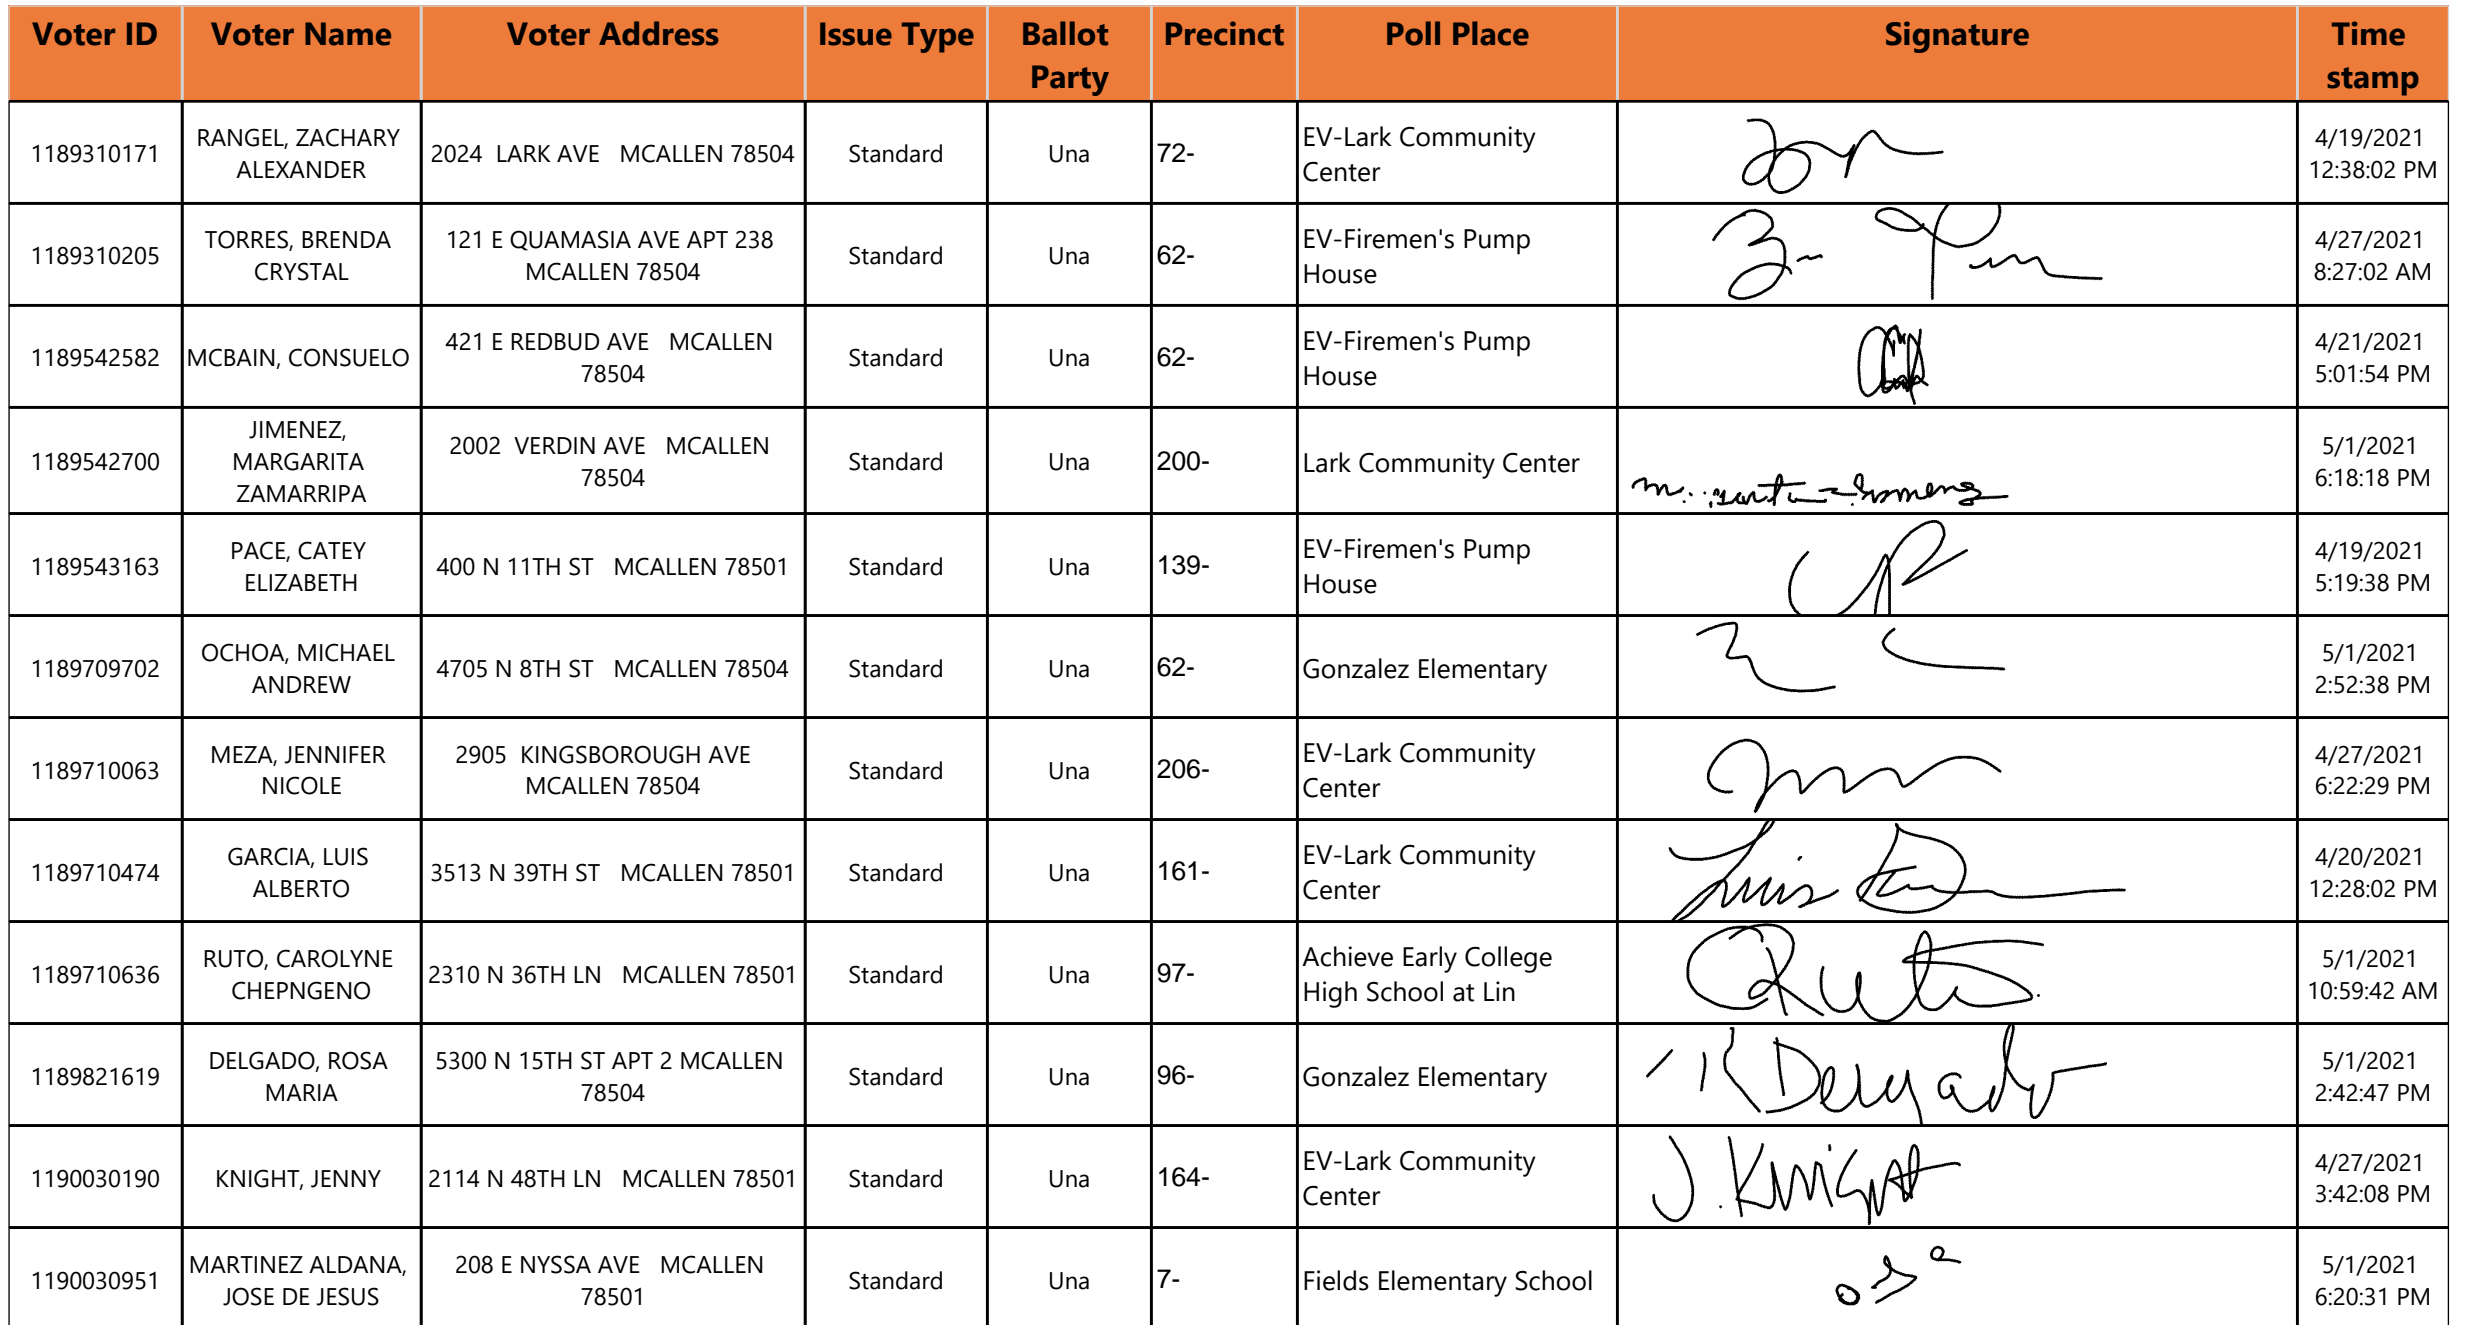 Voter ID Voter Name Voter Address Issue Type Ballot Party Precinct Poll Place Signature Time stamp
1189310171 RANGEL, ZACHARY ALEXANDER 2024 LARK AVE MCALLEN 78504 Standard Una 72- EV-Lark Community Center 4/19/2021 12:38:02 PM
1189310205 TORRES, BRENDA CRYSTAL 121 E QUAMASIA AVE APT 238 MCALLEN 78504 Standard Una 62- EV-Firemen's Pump House 4/27/2021 8:27:02 AM
1189542582 MCBAIN, CONSUELO 421 E REDBUD AVE MCALLEN 78504 Standard Una 62- EV-Firemen's Pump House 4/21/2021 5:01:54 PM
1189542700 JIMENEZ, MARGARITA ZAMARRIPA 2002 VERDIN AVE MCALLEN 78504 Standard Una 200- Lark Community Center 5/1/2021 6:18:18 PM
1189543163 PACE, CATEY ELIZABETH 400 N 11TH ST MCALLEN 78501 Standard Una 139- EV-Firemen's Pump House 4/19/2021 5:19:38 PM
1189709702 OCHOA, MICHAEL ANDREW 4705 N 8TH ST MCALLEN 78504 Standard Una 62- Gonzalez Elementary 5/1/2021 2:52:38 PM
1189710063 MEZA, JENNIFER NICOLE 2905 KINGSBOROUGH AVE MCALLEN 78504 Standard Una 206- EV-Lark Community Center 4/27/2021 6:22:29 PM
1189710474 GARCIA, LUIS ALBERTO 3513 N 39TH ST MCALLEN 78501 Standard Una 161- EV-Lark Community Center Luis 4/20/2021 12:28:02 PM
1189710636 RUTO, CAROLYNE CHEPNGENO 2310 N 36TH LN MCALLEN 78501 Standard Una 97- Achieve Early College High School at Lin CRuto 5/1/2021 10:59:42 AM
1189821619 DELGADO, ROSA MARIA 5300 N 15TH ST APT 2 MCALLEN 78504 Standard Una 96- Gonzalez Elementary R Delgado 5/1/2021 2:42:47 PM
1190030190 KNIGHT, JENNY 2114 N 48TH LN MCALLEN 78501 Standard Una 164- EV-Lark Community Center J. Knight 4/27/2021 3:42:08 PM
1190030951 MARTINEZ ALDANA, JOSE DE JESUS 208 E NYSSA AVE MCALLEN 78501 Standard Una 7- Fields Elementary School 5/1/2021 6:20:31 PM